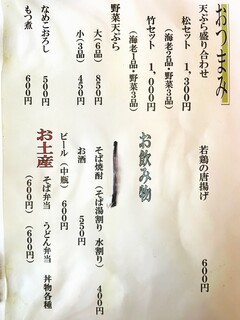 おつまみ
天ぷら盛り合わせ
松セット 1,300円
(海老2品・野菜3品)
竹セット 1,000円
(海老1品・野菜3品)
野菜天ぷら
大(6品) 850円
小(3品) 450円
なめこおろし 500円
もつ煮 600円
若鶏の唐揚げ 600円
お飲み物
そば焼酎(そば湯割り 水割り) 400円
お酒 550円
ビール(中瓶) 600円
お土産
そば弁当 うどん弁当 丼物各種
(600円) (600円)